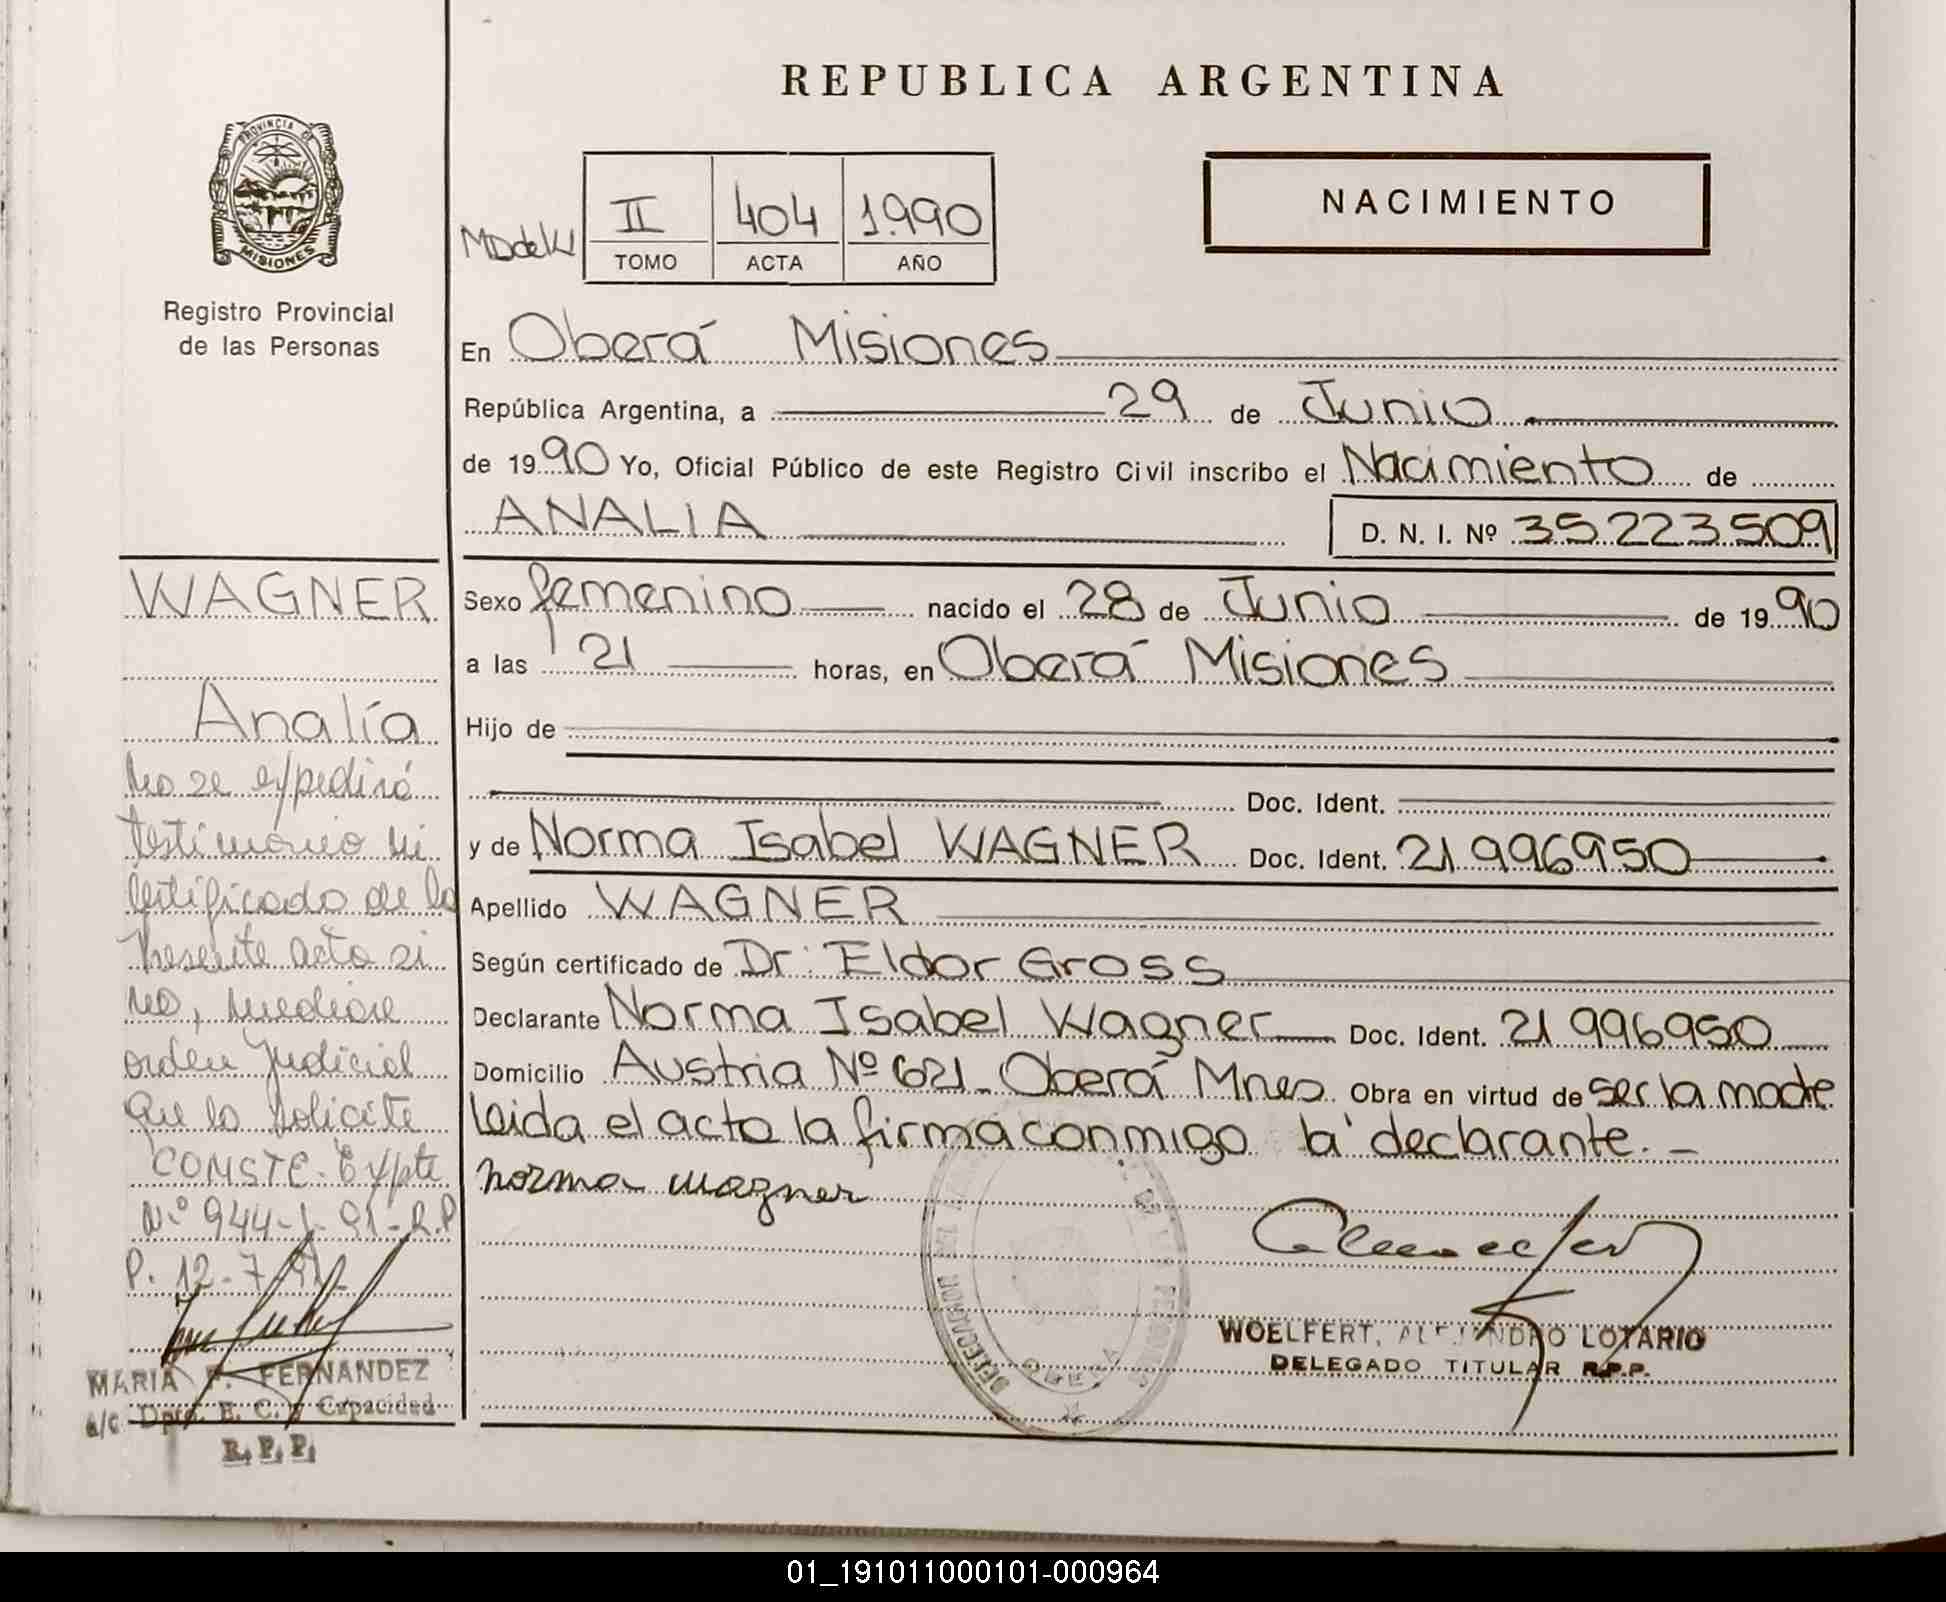 REPUBLICA ARGENTINA
PROVINCIA DE
MISIONES
Registro Provincial
de las Personas
II 404 1990
TOMO ACTA AÑO
NACIMIENTO
En Oberá Misiones
República Argentina, a 29 de Junio
de 1990 Yo, Oficial Público de este Registro Civil inscribo el Nacimiento de
ANALIA D. N. I. Nº 35.223.509
WAGNER
Analía
No se expedirá
testimonio ni
certificado de la
presente acta si
no, mediare
orden Judicial
que lo solicite
CONSTE. Expte
Nº 944-J-91-R.P
P. 12-7-91
MARIA F. FERNANDEZ
a/c Dpto. E. C. y Capacidad
R. P. P.
Sexo femenino nacido el 28 de Junio de 1990
a las 21 horas, en Oberá Misiones
Hijo de
Doc. Ident.
y de Norma Isabel WAGNER Doc. Ident. 21 996950
Apellido WAGNER
Según certificado de Dr. Eldor Gross
Declarante Norma Isabel Wagner Doc. Ident. 21 996950
Domicilio Austria Nº 621 - Oberá Mnes. Obra en virtud de ser la madre
Leida el acta la firma conmigo la declarante. -
Norma Wagner
WOELFERT, ALEJANDRO LOTARIO
DELEGADO TITULAR R.P.P.
OBERA
01_191011000101-000964